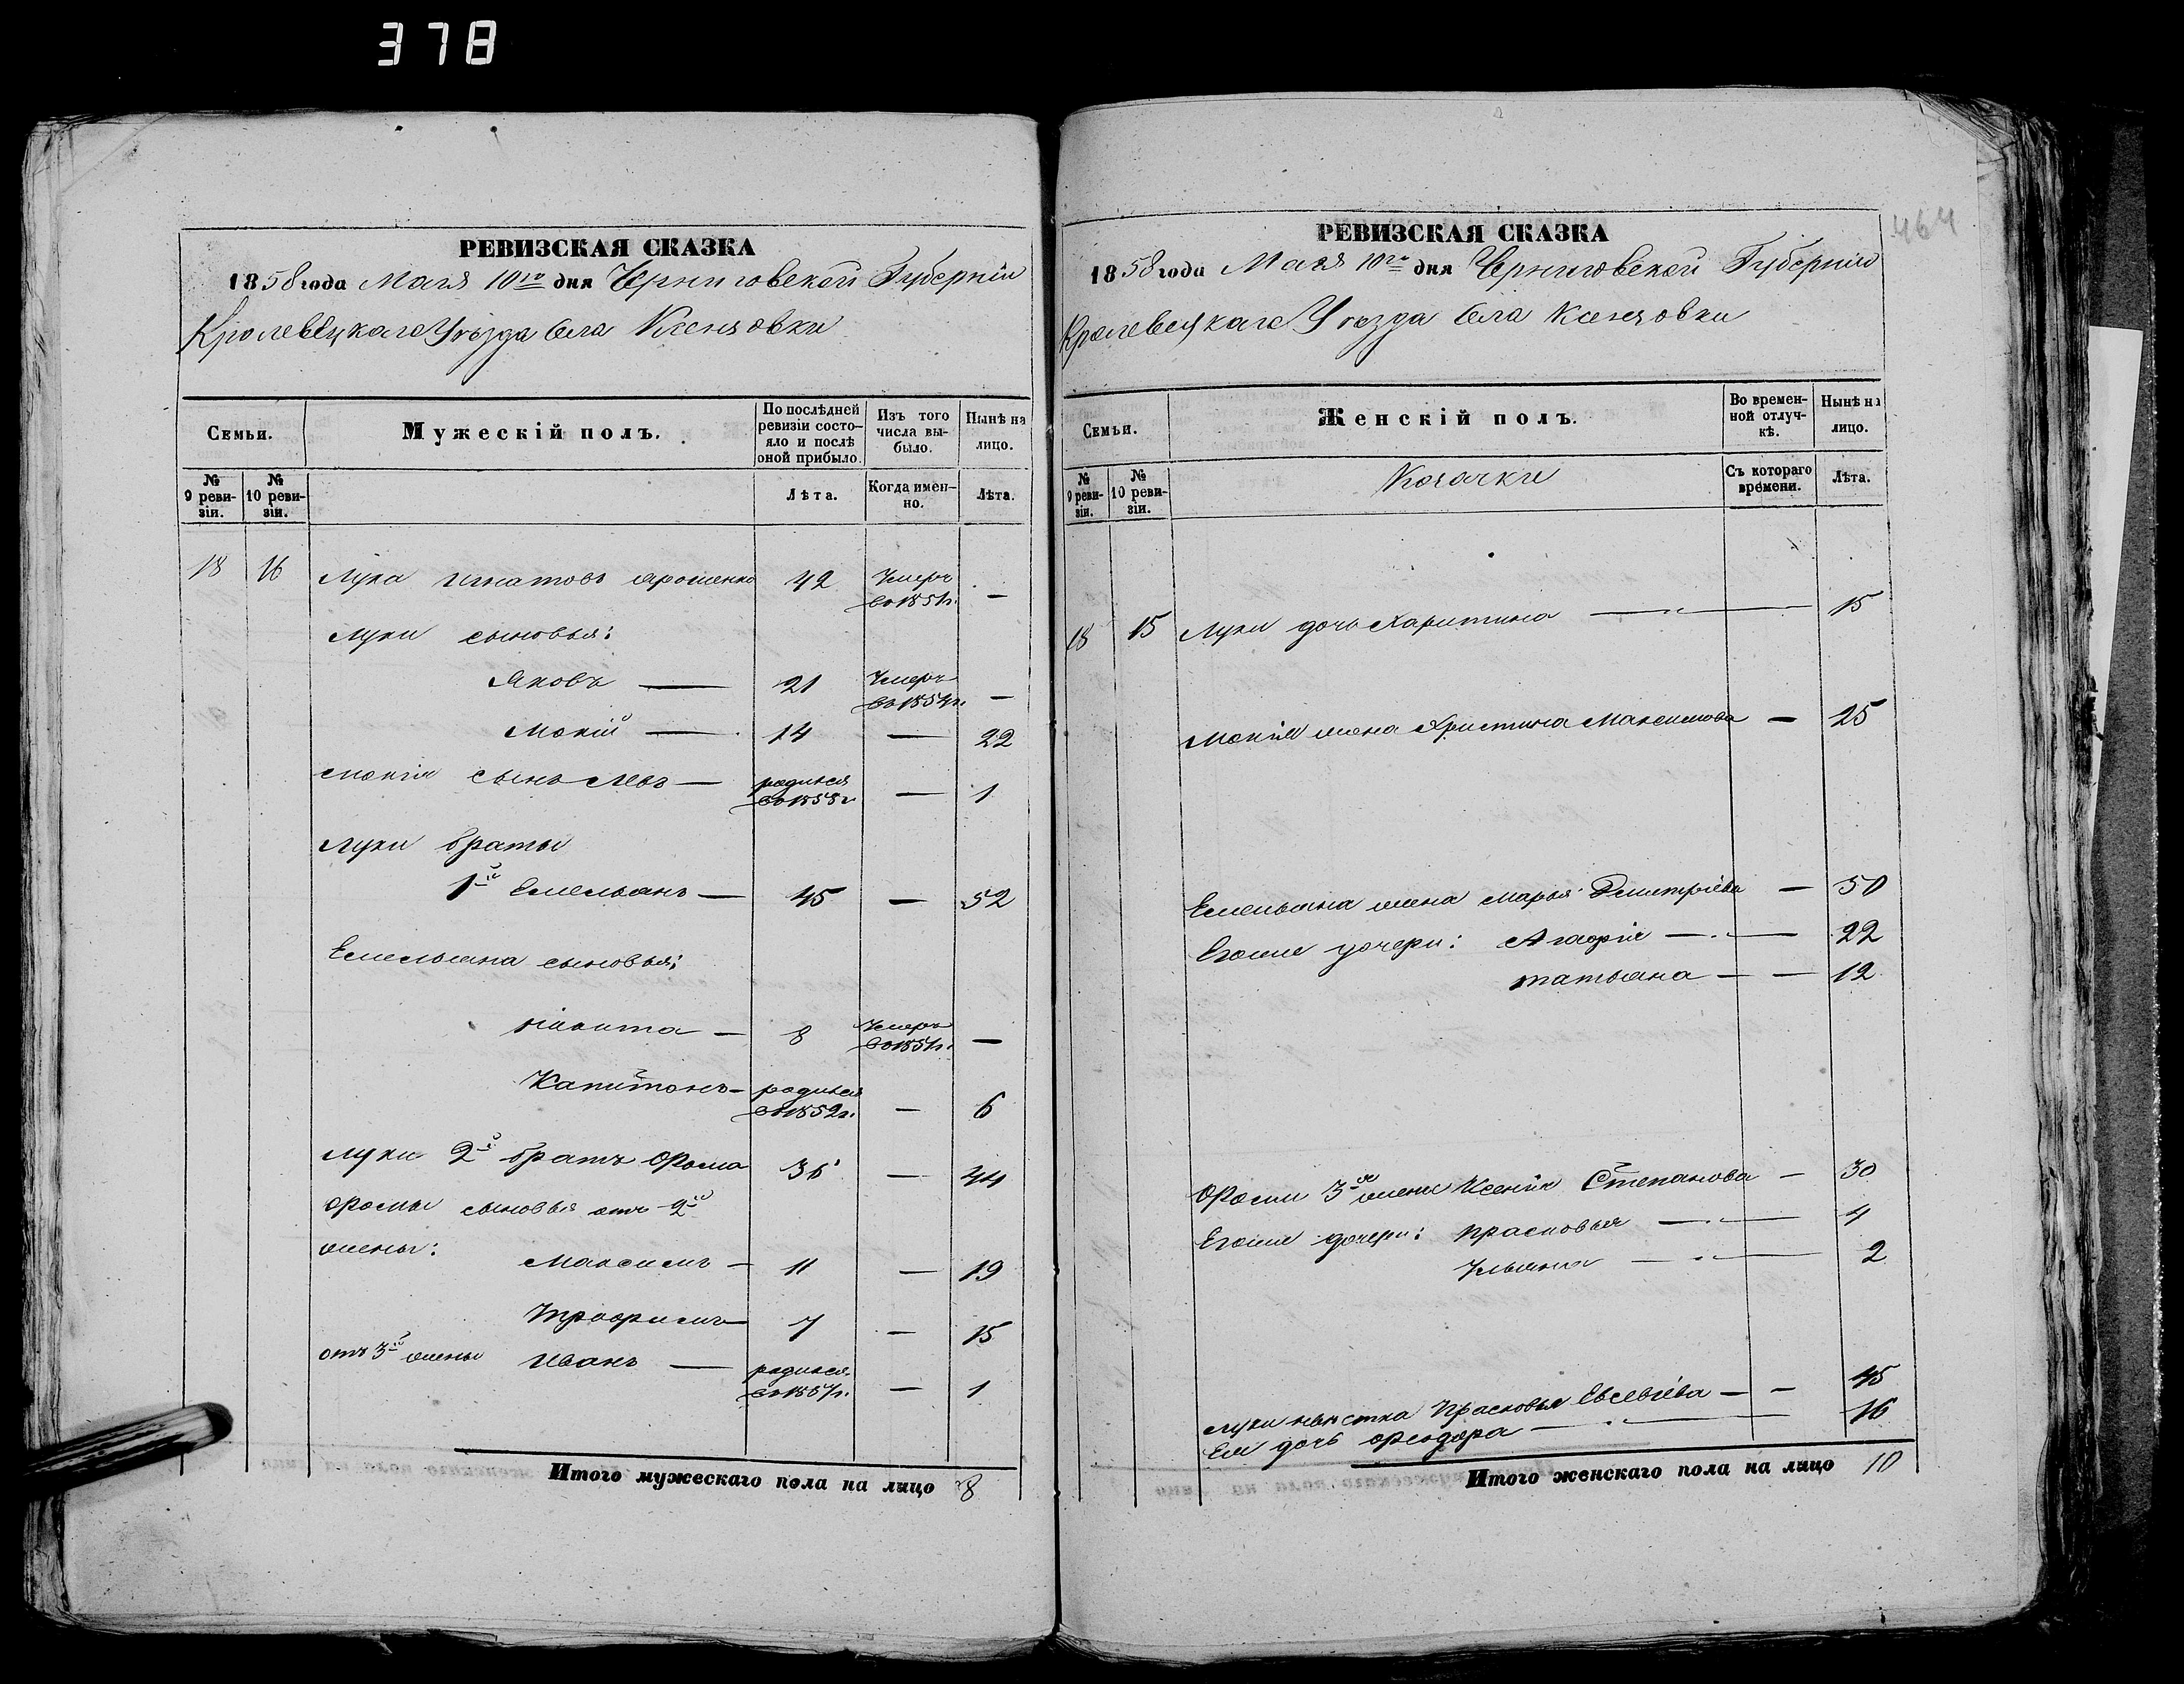 378
РЕВИЗСКАЯ СКАЗКА
1858 года Мая 10го дня Черниговской Губерніи
Кролевецкаго Уѣзда Села Ксензовки
Семьи.
Мужескій полъ.
По послѣдней ревизіи состояло и послѣ оной прибыло.
Изъ того числа выбыло.
Нынѣ на лицо.
№ 9 ревизіи.
№ 10 ревизіи.
Лѣта.
Когда именно.
Лѣта.
18 16 Лука Игнатовъ Ярошенко 42 Умеръ въ 1851г. —
Луки сыновья:
Яковъ — 21 Умеръ въ 1854г. —
Мокій — 14 — 22
Мокія сынъ Левъ — родился въ 1858г. — 1
Луки браты
1й Емельянъ — 45 — 52
Емельяна сыновья:
Никита — 8 Умеръ въ 1851г. —
Капитонъ — родился въ 1852г. — 6
Луки 2й братъ Фома 36 — 44
Фомы сыновья отъ 2й
жены:
Максимъ — 11 — 19
Трофимъ — 7 — 15
отъ 3й жены Иванъ — родился въ 1857г. — 1
Итого мужескаго пола на лицо 8
464
РЕВИЗСКАЯ СКАЗКА
1858 года Мая 10го дня Черниговской Губерніи
Кролевецкаго Уѣзда Села Ксензовки
Семьи.
Женскій полъ.
Во временной отлучкѣ.
Нынѣ на лицо.
№ 9 ревизіи.
№ 10 ревизіи.
Козачки
Съ котораго времени.
Лѣта.
18 15 Луки дочь Харитина — 15
Мокія жена Христина Максимова — 25
Емельяна жена Марья Дмитріева — 50
Егоже дочери: Агафія — — 22
Татьяна — — 12
Фомы 3я жена Ксенія Степанова — 30
Егоже дочери: Прасковья — 4
Ульяна — 2
Луки невѣстка Прасковья Евсевіева — — 45
Ея дочь Феодора — 16
Итого женскаго пола на лицо 10